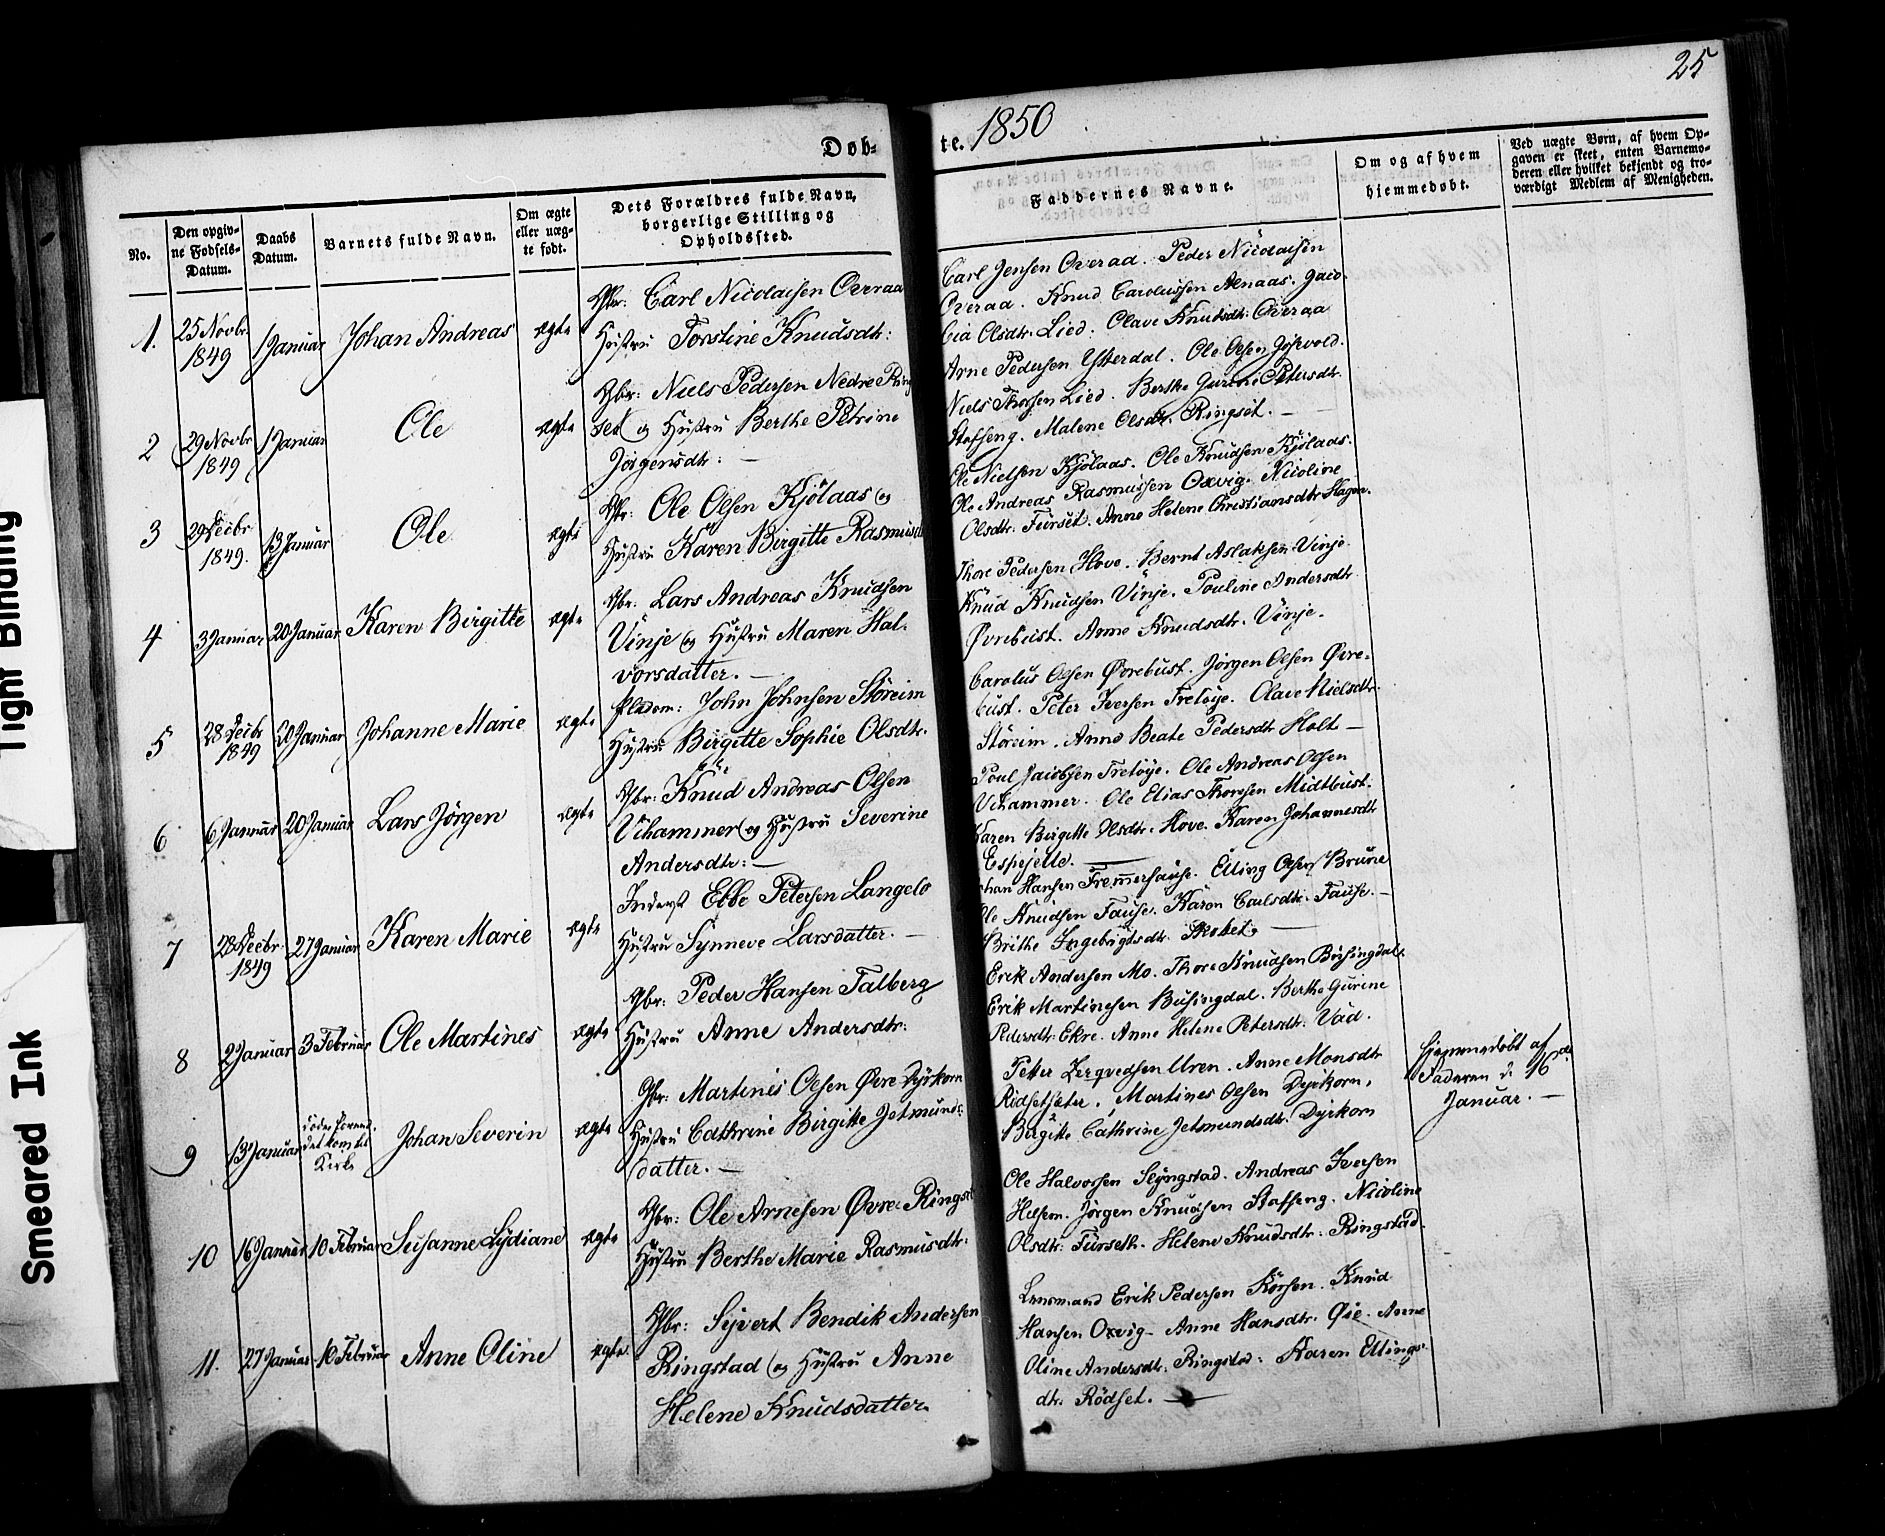 25
Døb-
te. 1850
No.
Den opgiv-
ne Fødsels-
Datum.
Daabs
Datum.
Barnets fulde Navn.
Om ægte
eller uæg-
te født.
Dets Forældres fulde Navn,
borgerlige Stilling og
Opholdssted.
Faddernes Navne.
Om og af hvem
hjemmedøbt.
Ved uægte Børn, af hvem Op-
gaven er skeet, enten Barnemo-
deren eller hvilket bekjendt og tro-
værdigt Medlem af Menigheden.
1.
25 Novbr
1849
1 Januar
Johan Andreas
ægte
Gbr: Carl Nicolaisen Overaa
Hustru Torstine Knudsdtr:
Carl Jensen Overaa. Peder Nicolaisen
Overaa. Knud Carolussen Alnaas.
Olsdtr. Lied. Olave Knudsdtr. Overaa
2
29 Novbr
1849
1 Januar
Ole
ægte
Gbr: Niels Pedersen Nedre Ring
set og Hustru Berthe Petrine
Jørgensdtr: —
Arne Pedersen Ytterdal. Ole Olsen
Niels Thorsen Lied. Berthe Gurine Petersdtr.
Stafseng. Malene Olsdtr. Ringset. —
3
29 Decbr
1849.
13 Januar
Ole
ægte
Gbr: Ole Olsen Kjølaas og
Hustru Karen Birgitte Rasmusd
Ole Nielsen Kjølaas. Ole Knudsen Kjølaas.
Ole Andreas Rasmussen Oxvig. Nicoline
Olsdtr. Furset. Anne Helene Christiansdtr Hagen.
4
3 Januar
20 Januar
Karen Birgitte
ægte
Gbr: Lars Andreas Knudsen
Vinje og Hustru Maren Hal-
vorsdatter. —
Thore Pedersen Hove. Bernt Aslaksen Vinje.
Knud Knudsen Vinje. Pouline Andersdtr
Øvrebust. Anne Knudsdtr. Vinje.
5
28 Decbr
1849
20 Januar
Johanne Marie
ægte
Pladsm: John Johnsen Støreim
Hustru Birgitte Sophie Olsdtr.
Carolus Olsen Øvrebust. Jørgen Olsen Øvre-
bust. Peter Iversen Tretøye. Olave Nielsdtr.
Støreim. Anne Beate Pedersdtr Holt —
6
6 Januar
20 Januar
Lars Jørgen
ægte
Gbr: Knud Andreas Olsen
Vihammer og Hustru Severine
Andersdtr: —
Poul Jacobsen Tretøye. Ole Andreas Olsen
Vihammer. Ole Elias Thoresen Midtbust.
Karen Birgitte Olsdtr. Hove. Karen Johannesdtr
Espejelle. —
7
28 Decbr.
1849
27 Januar
Karen Marie
ægte
Inderst Ebbe Petersen Langelo
Hustru Synneve Larsdatter. —
Hansen Fremmerhause. Elling Olsen Brune
Ole Knudsen Fause. Karen Carlsdtr. Fause. —
Brithe Ingebrigtsdtr. Skotet. —
8
2 Januar
3 Februar
Ole Martines
ægte
Gbr: Peder Hansen Talberg
Hustru Anne Andersdtr:
Erik Andersen Mo. Thore Knudsen Busingdal.
Erik Martinesen Busingdal. Berthe Gurine
Pedersdtr: Ekre. Anne Helene Petersdtr. Vad.
9
13 Januar
døde forend
det kom til
Kirke
Johan Severin
ægte
Gbr: Martinis Olsen Øvre Dyrkorn
Hustru Cathrine Birgitte Jetmunds-
datter. —
Petter Uren. Anne Monsdtr
Ridsetsæter. Martines Olsen Dyrkorn.
Birgitte Cathrine Jetmundsdtr. Dyrkorn
Hjemmedøbt af
Faderen d. 16de
Januar. —
10
16 Januar
10 Februar
Susanne Lydiane
ægte
Gbr: Ole Arnesen Øvre Ringst
Hustru Berthe Marie Rasmusdtr:
Ole Halvorsen Slyngstad. Andreas Iversen
Jørgen Knudsen Stafseng. Nicoline
Olsdtr: Furseth. Helene Knudsdtr: Ringstad
11.
27 Januar
10 Februar
Anne Oline
ægte
Gbr: Syvert Bendik Andersen
Ringstad og Hustru Anne
Helene Knudsdatter.
Lensmand Erik Pedersen Korsen. Knud
Hansen Oxvig. Anne Hansdtr. Øie. Anne
Oline Andersdtr: Ringstad: Karen Ellings-
dtr: Rødset. —
Tight Binding
Smeared Ink